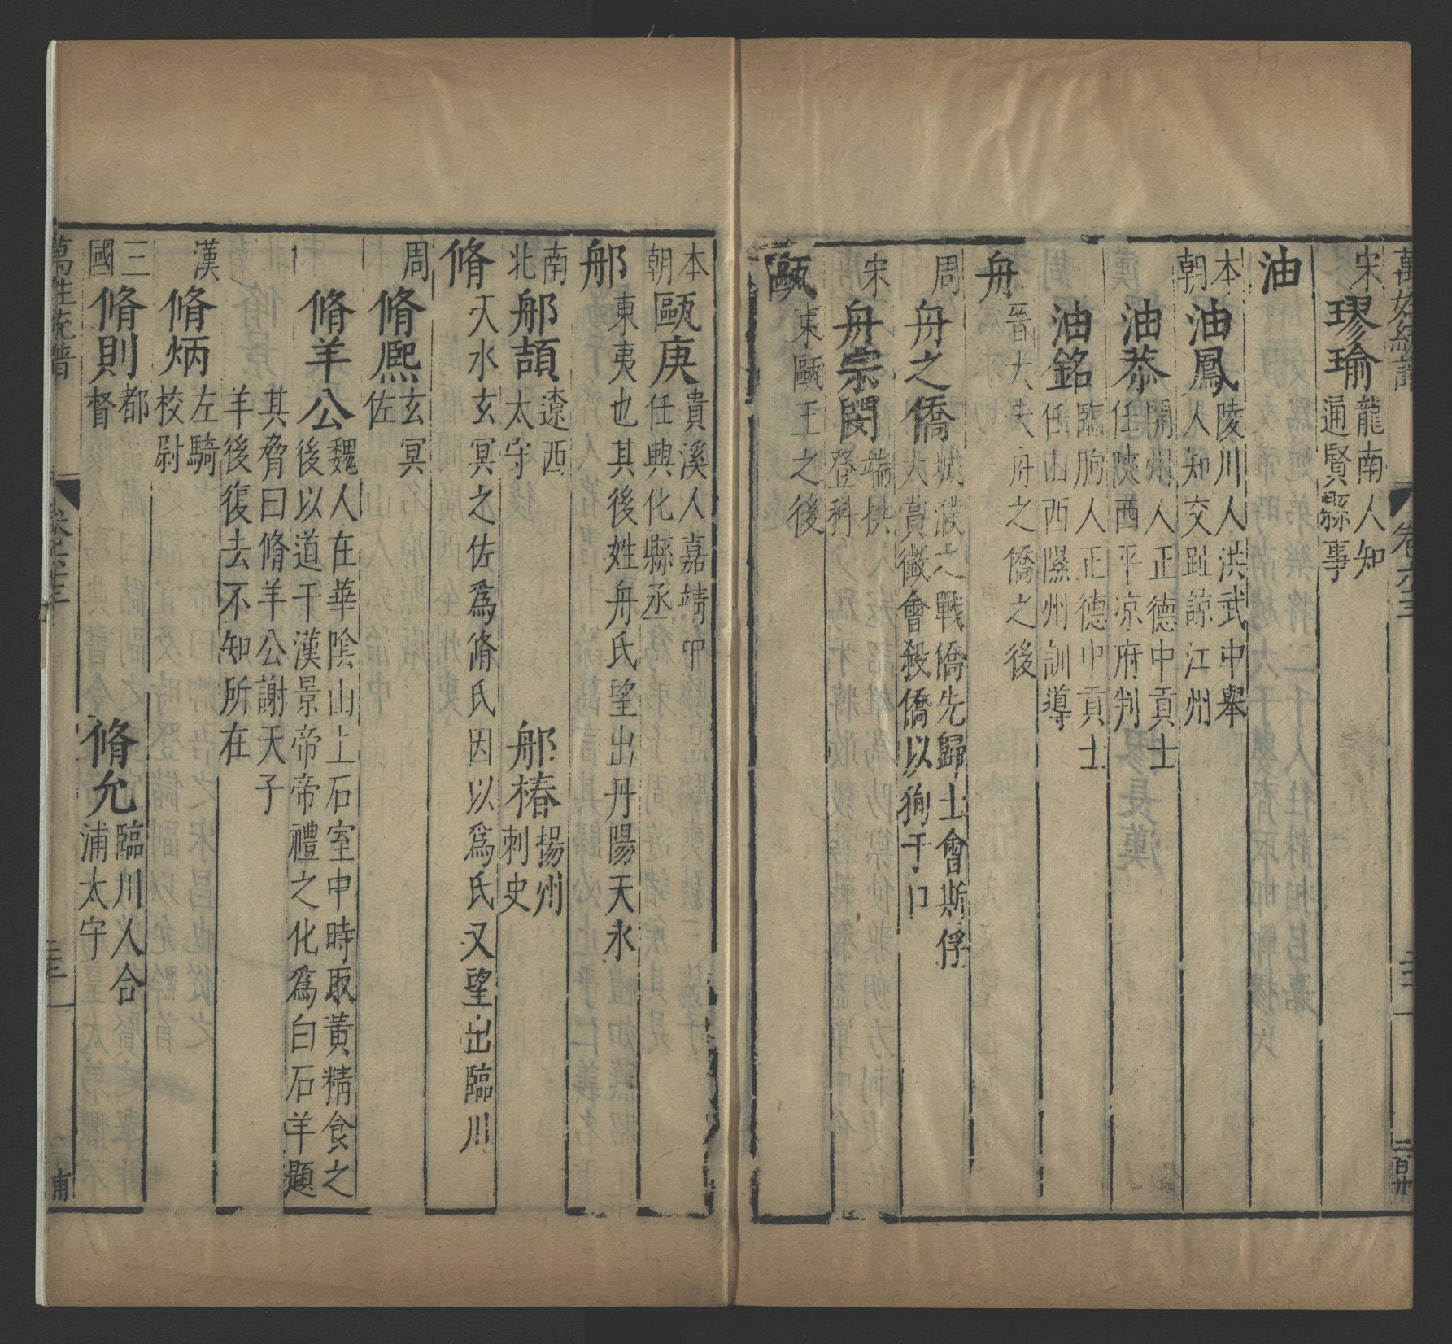 萬姓統譜 卷六十三
宋 璆瑜 龍南人知
通賢縣事
油
本朝 油鳳 陵川人洪武中舉
人知交趾諒江州
油恭 開州人正德中貢士
任陝西平凉府判
油銘 臨朐人正德中貢士
任山西隰州訓導
舟
晋大夫舟之僑之後
周 舟之僑 城濮之戰僑先歸士會斯俘
大賞徵會殺僑以狥于
宋 舟宗閔 端拱
登科
甌
東甌王之後
本朝 甌庚 貴溪人嘉靖中
任興化縣丞
郍
東夷也其後姓舟氏望出丹陽天水
南北 郍頡 遼西
太守
郍椿 揚州
刺史
脩
天水玄冥之佐爲脩氏因以爲氏又望出臨川
周 脩熈 玄冥
佐
脩羊公 魏人在華隂山上石室中時取黃精食之
後以道干漢景帝帝禮之化爲白石羊題
其脅曰脩羊公謝天子
羊後復去不知所在
漢 脩炳 左騎
校尉
三國 脩則 都
督
脩允 臨川人合
浦太守
萬姓統譜 卷六十三